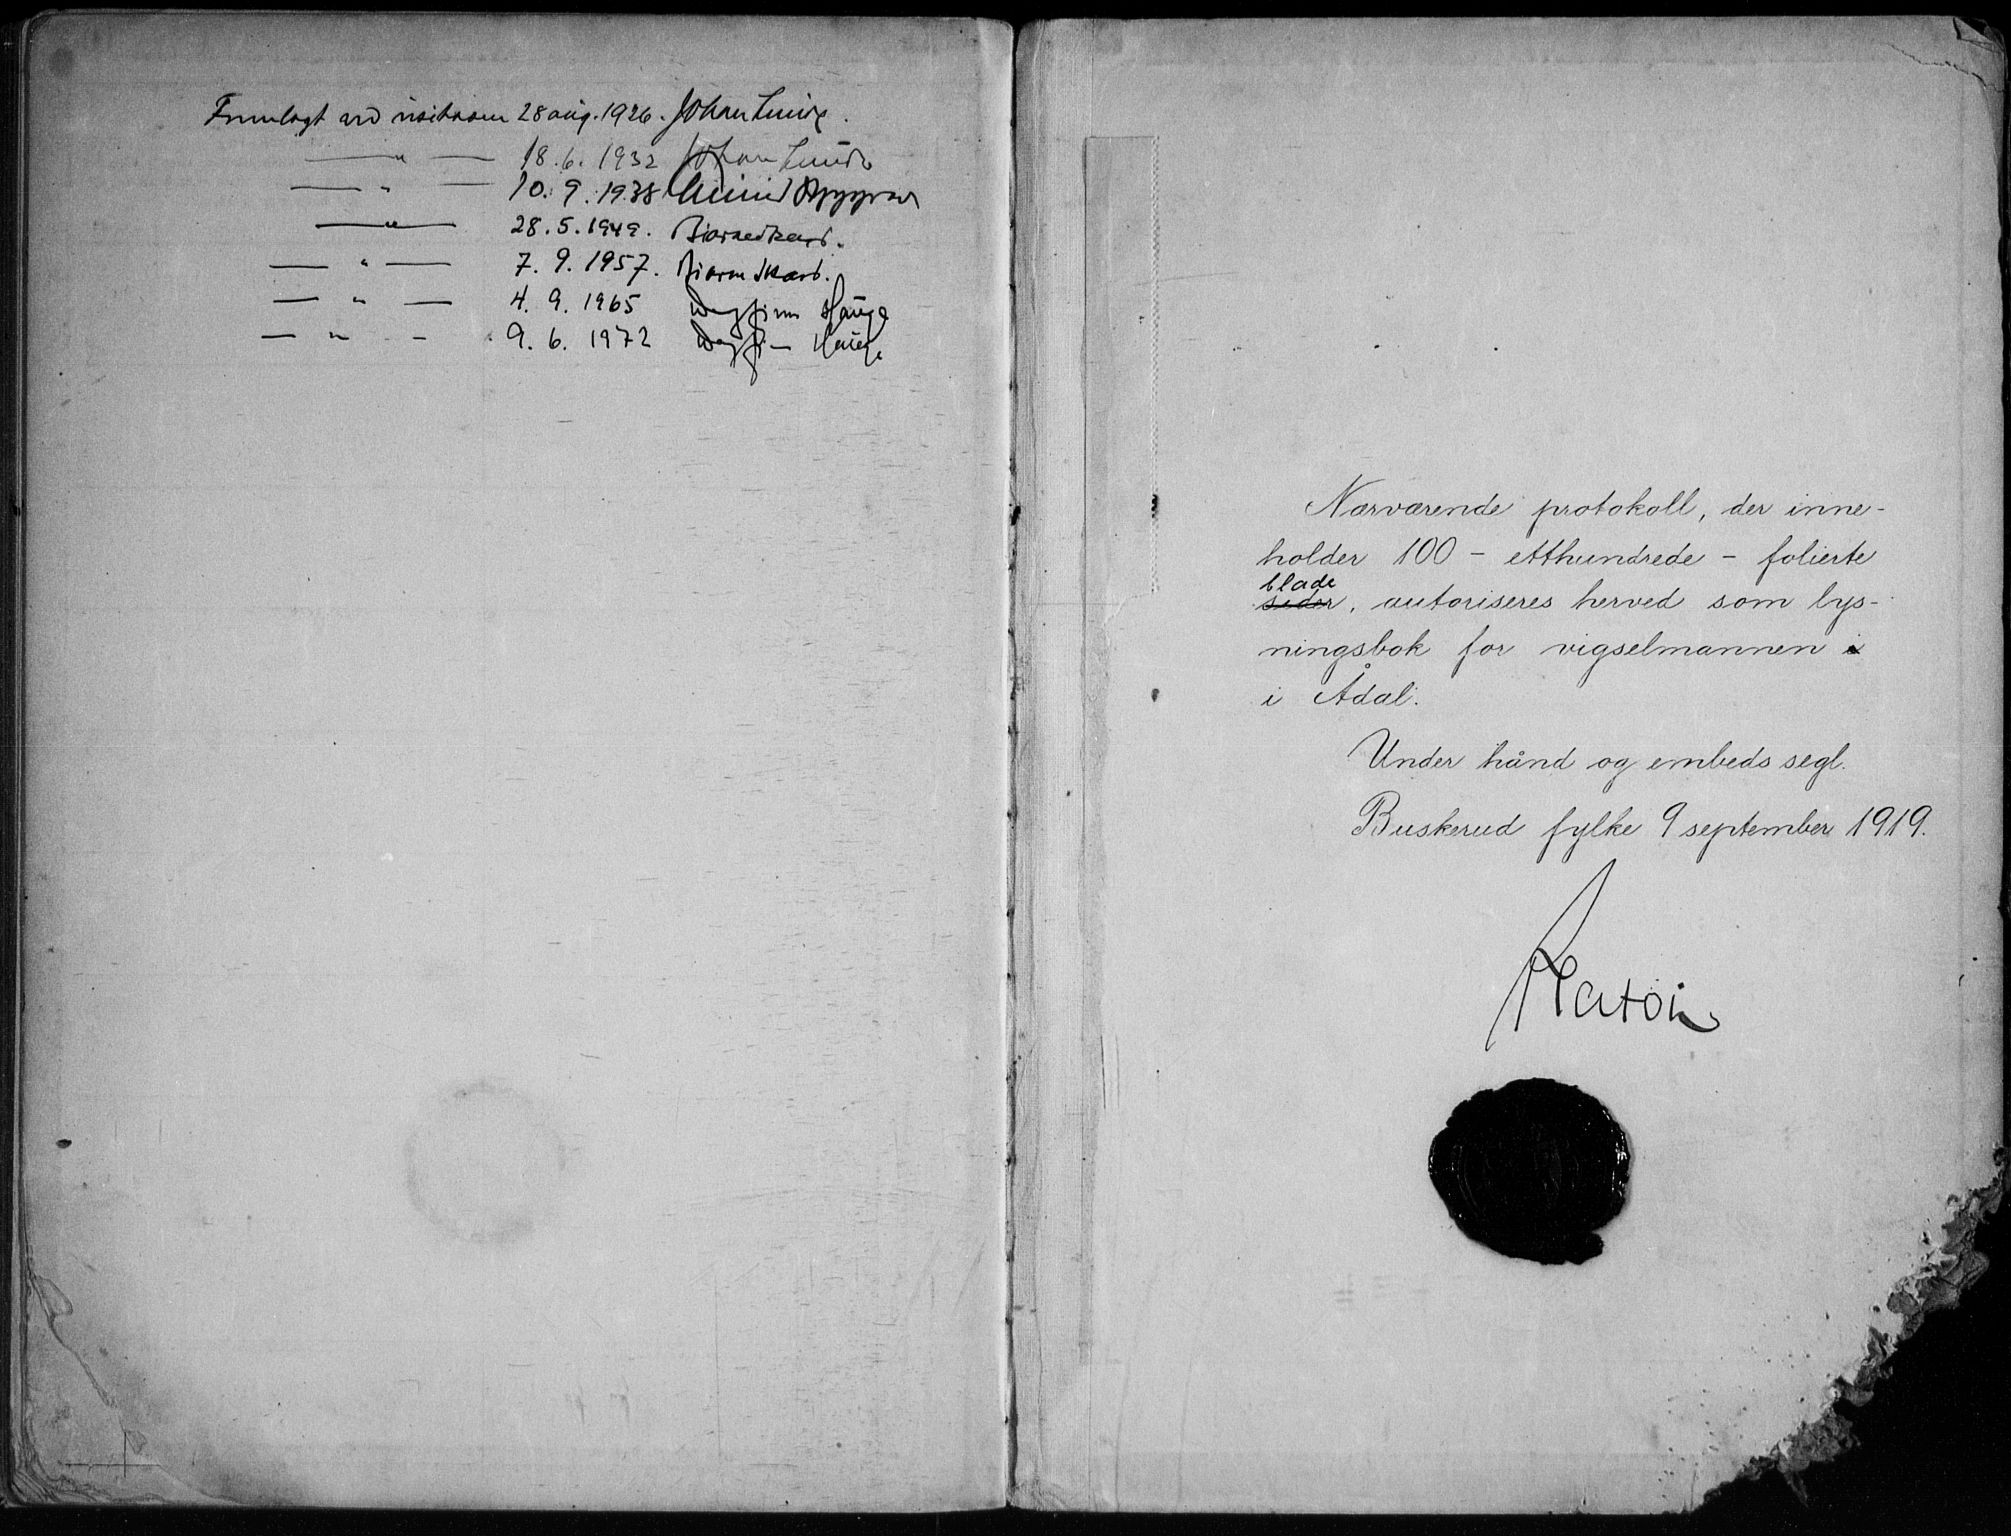 Fremlagt ved visitasen 28 aug. 1926. Johan Lunde.
— " — 18.6. 1932 Johan Lunde
— " — 10. 9. 1938
— " — 28. 5. 1949. Bjarne Skard.
— " — 7. 9. 1957. Bjarne Skard.
— " — 4. 9. 1965 Dagfinn Hauge
— " — 9. 6. 1972 Dagfinn Hauge
Nærværende protokoll, der inne-
holder 100 - etthundrede - folierte
blade
sider, autoriseres herved som lys-
ningsbok for vigselmannen i
i Ådal.
Under hånd og embeds segl.
Buskerud fylke 9 september 1919.